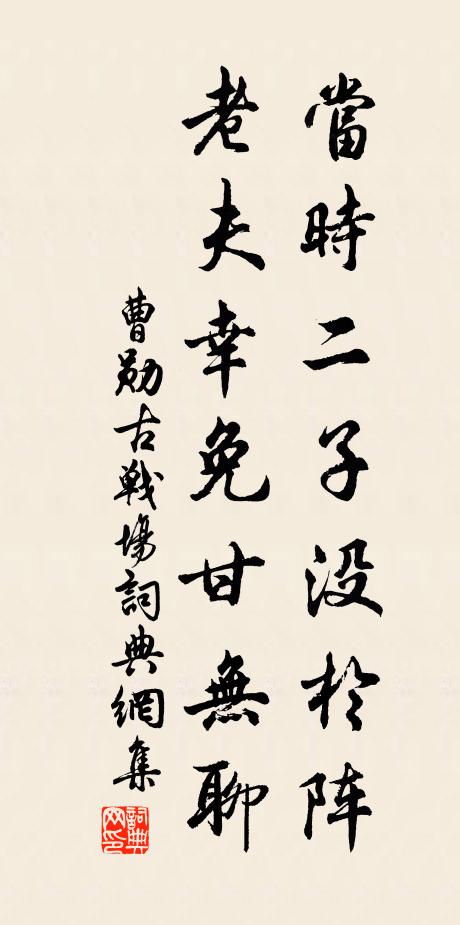 當時二子没於阵
老夫幸免甘無聊
曹勛古戰場詞典網集
詞典网印